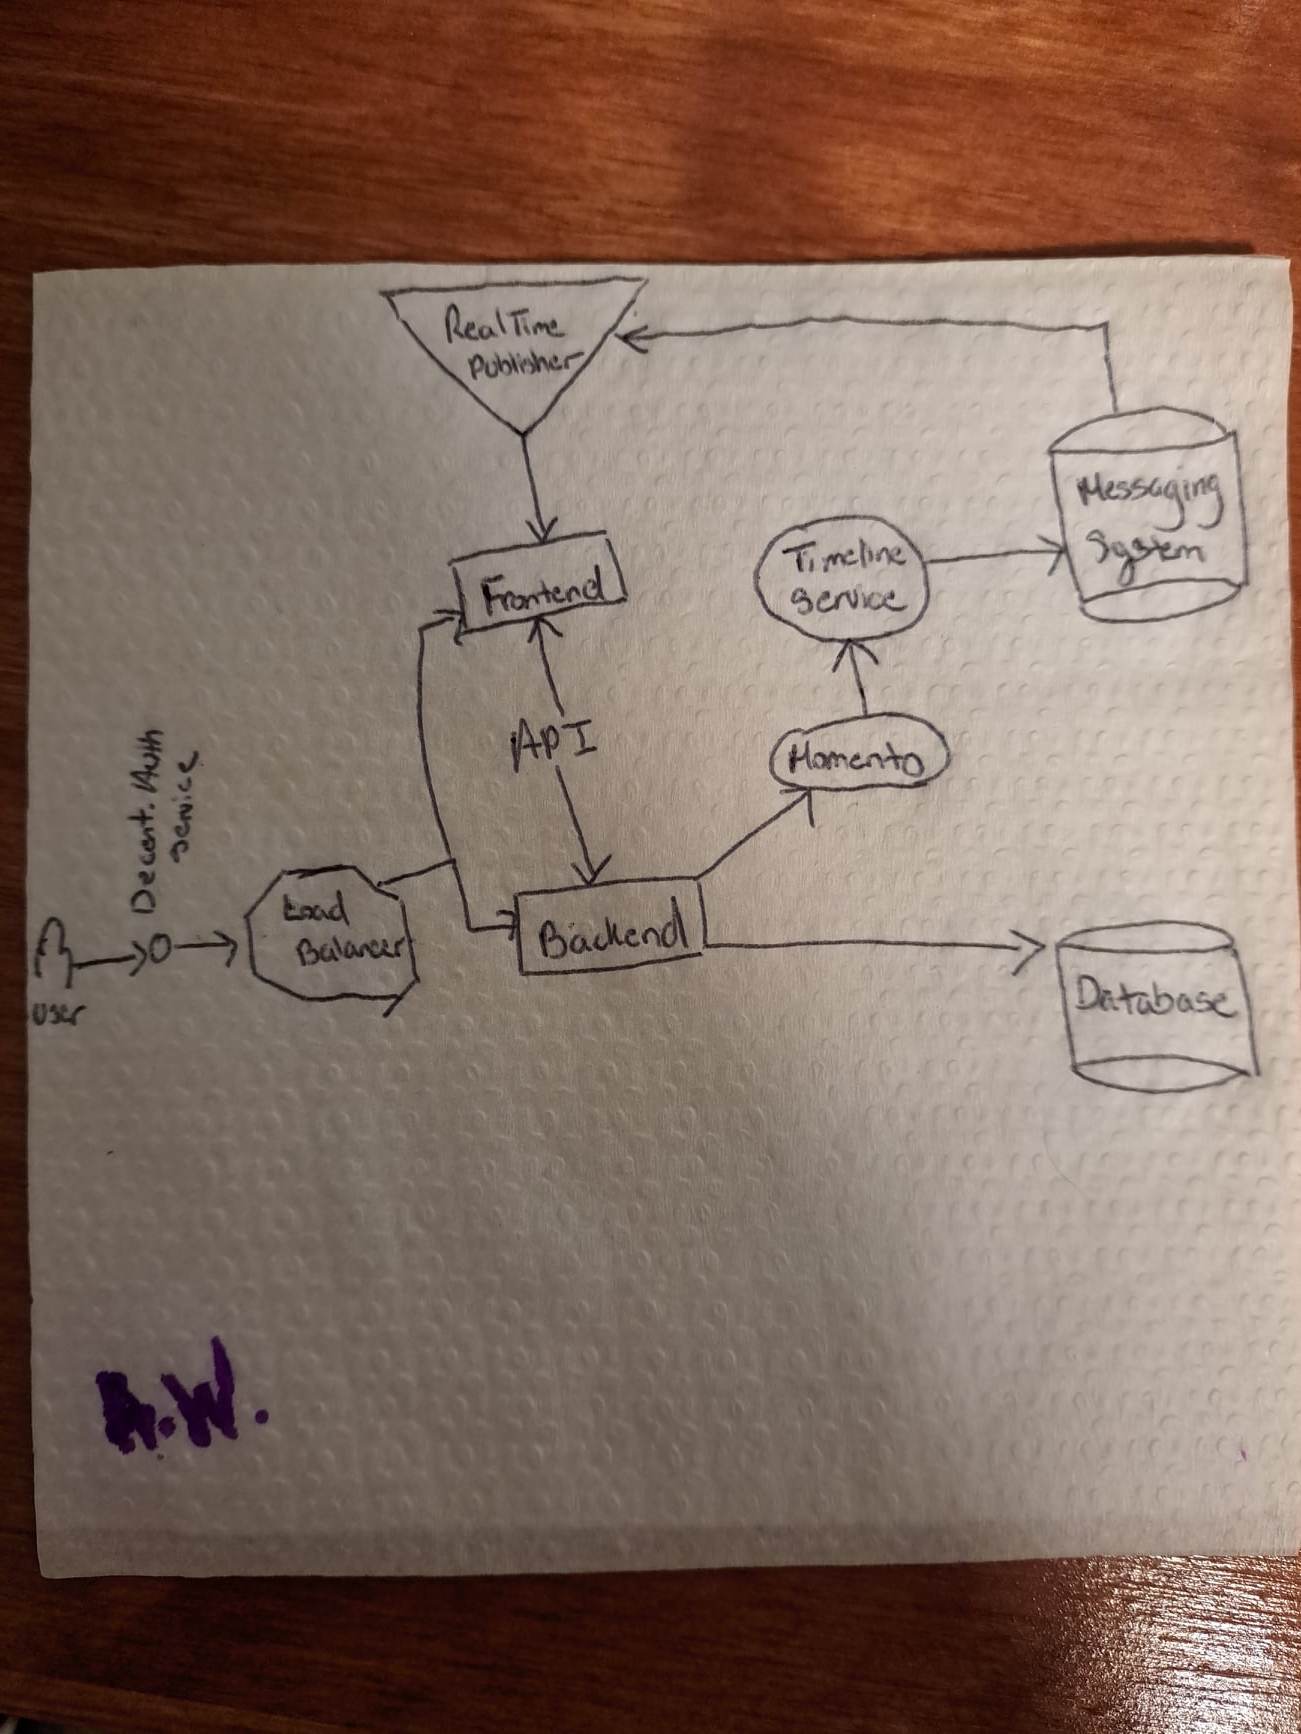 RealTime
Publisher
Messaging
System
Timeline
Service
Frontend
API
Momento
Decent. Auth
Service
Load
Balancer
Backend
User
Database
A.W.